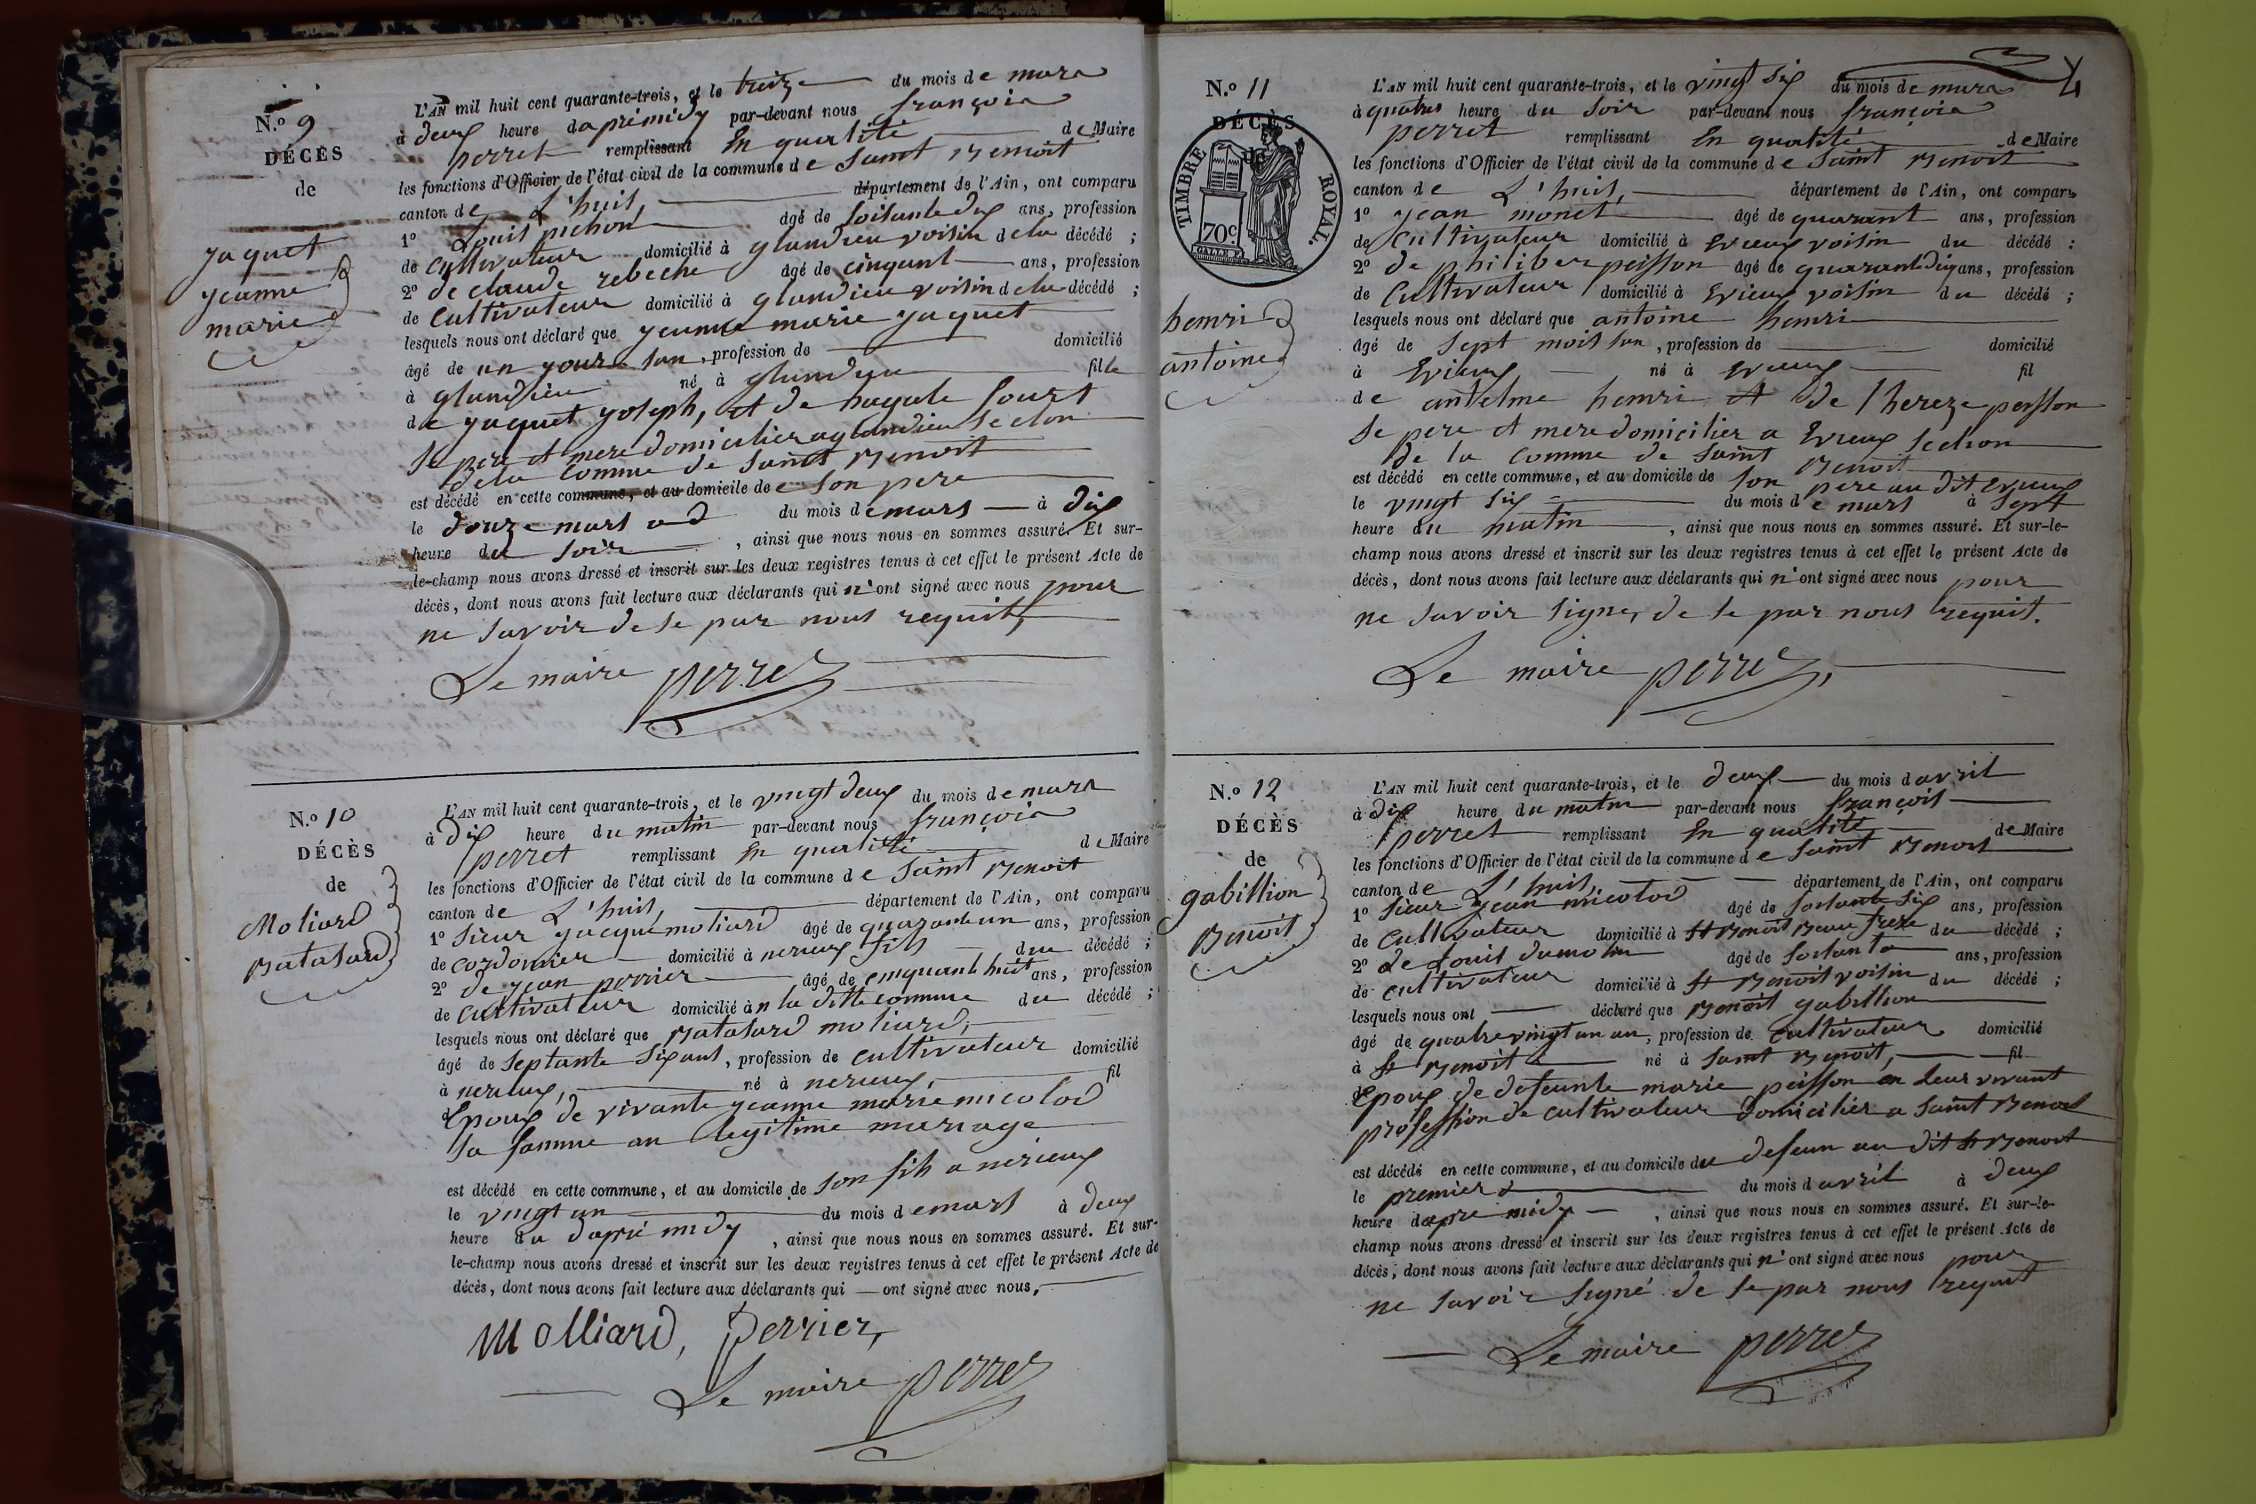 N.º 9
DÉCÈS
de
yaquet
yeanne
marie
L'AN mil huit cent quarante-trois, et le treize du mois de mars
à deux heure daprémidy par-devant nous françois
perret remplissant En quallité de Maire
les fonctions d'Officier de l'état civil de la commune de Saint Benoit
canton de L'huis, département de l'Ain, ont comparu
1º Louis pichon âgé de soisante dix ans, profession
de Cultivateur domicilié à glandieu voisin dela décédé ;
2º de claude rebeche âgé de cinquant ans, profession
de Cultivateur domicilié à glandieu voisin dela décédé ;
lesquels nous ont déclaré que yeanne marie yaquet
âgé de un yours son, profession de domicilié
à glandieu né à glandieu fille
de yaquet yoseph, et de
Se pere et mere domicilier a glandieu Section
dela Commue de Saint Benoit
est décédé en cette commune, et au domicile de son pere
le douze mars du mois de mars à dix
heure du Soir , ainsi que nous nous en sommes assuré. Et sur-
le-champ nous avons dressé et inscrit sur les deux registres tenus à cet effet le présent Acte de
décès, dont nous avons fait lecture aux déclarants qui n'ont signé avec nous pour
ne savoir de se par nous requit,
Le maire perret
N.º 10
DÉCÈS
de
Moliard
Batasard
L'AN mil huit cent quarante-trois, et le vingt deux du mois de mars
à Dix heure du matin par-devant nous françois
perret remplissant En quallité de Maire
les fonctions d'Officier de l'état civil de la commune de Saint Benoit
canton de L'huis, département de l'Ain, ont comparu
1º Sieur yacque moliard âgé de quarante un ans, profession
de cordonnier domicilié à nerieux fils du décédé ;
2º de yean perrier âgé de cinquante huit ans, profession
de Cultivateur domicilié à n la ditte commune du décédé ;
lesquels nous ont déclaré que Batasard moliard,
âgé de septante six ans, profession de cultivateur domicilié
à nerieux, né à nerieux, fil
d Epoux de vivante yeanne marie nicolod
sa famme an legitime mariage
est décédé en cette commune, et au domicile de son fils a nerieux
le vingt un du mois de mars à deux
heure du daprémidy , ainsi que nous nous en sommes assuré. Et sur-
le-champ nous avons dressé et inscrit sur les deux registres tenus à cet effet le présent Acte de
décès, dont nous avons fait lecture aux déclarants qui — ont signé avec nous,
Molliard, perrier,
Le maire perret
4
N.º 11
DÉCÈS
de
TIMBRE ROYAL.
70c.
henri
antoine
L'AN mil huit cent quarante-trois, et le vingt six du mois de mars
à quatres heure du Soir par-devant nous françois
perret remplissant En quallité de Maire
les fonctions d'Officier de l'état civil de la commune de Saint Benoit
canton de L'huis, département de l'Ain, ont comparu
1º yean monet âgé de quarant ans, profession
de Cultivateur domicilié à Evieux voisin du décédé ;
2º de philiber peisson âgé de quarante dix ans, profession
de Cultivateur domicilié à Evieux voisin du décédé ;
lesquels nous ont déclaré que antoine henri
âgé de Sept mois son, profession de domicilié
à Evieux né à Evieux fil
de antelme henri et de thereze peisson
Se pere et mere domicilier a Evieux Section
de la Comme de Saint Benoit
est décédé en cette commune, et au domicile de son pere au dit Evieux
le vingt six du mois de mars à Sept
heure du matin , ainsi que nous nous en sommes assuré. Et sur-le-
champ nous avons dressé et inscrit sur les deux registres tenus à cet effet le présent Acte de
décès, dont nous avons fait lecture aux déclarants qui n'ont signé avec nous pour
ne savoir signer de se par nous requit.
Le maire perret,
N.º 12
DÉCÈS
de
gabillion
Benoit
L'AN mil huit cent quarante-trois, et le deux du mois d avril
à Dix heure du matin par-devant nous françois
perret remplissant En quallité de Maire
les fonctions d'Officier de l'état civil de la commune de Saint Benoit
canton de L'huis, département de l'Ain, ont comparu
1º Sieur yean nicolod âgé de soisante six ans, profession
de Cultivateur domicilié à St Benoit Beau frere du décédé ;
2º de Louis dumolin âgé de soisante ans, profession
de cultivateur domicilié à St Benoit voisin du décédé ;
lesquels nous ont déclaré que Benoit gabillion
âgé de quatre vingt un an, profession de Cultivateur domicilié
à St Benoit né à Saint Benoit, fil
d Epoux de defeunte marie peisson en leur vivant
profession de cultivateur domicilier a Saint Benoit
est décédé en cette commune, et au domicile du defeun au dit St Benoit
le premier du mois d avril à deux
heure dapre midy , ainsi que nous nous en sommes assuré. Et sur-le-
champ nous avons dressé et inscrit sur les deux registres tenus à cet effet le présent Acte de
décès, dont nous avons fait lecture aux déclarants qui n'ont signé avec nous pour
ne savoir signé de se par nous requit
Le maire perret